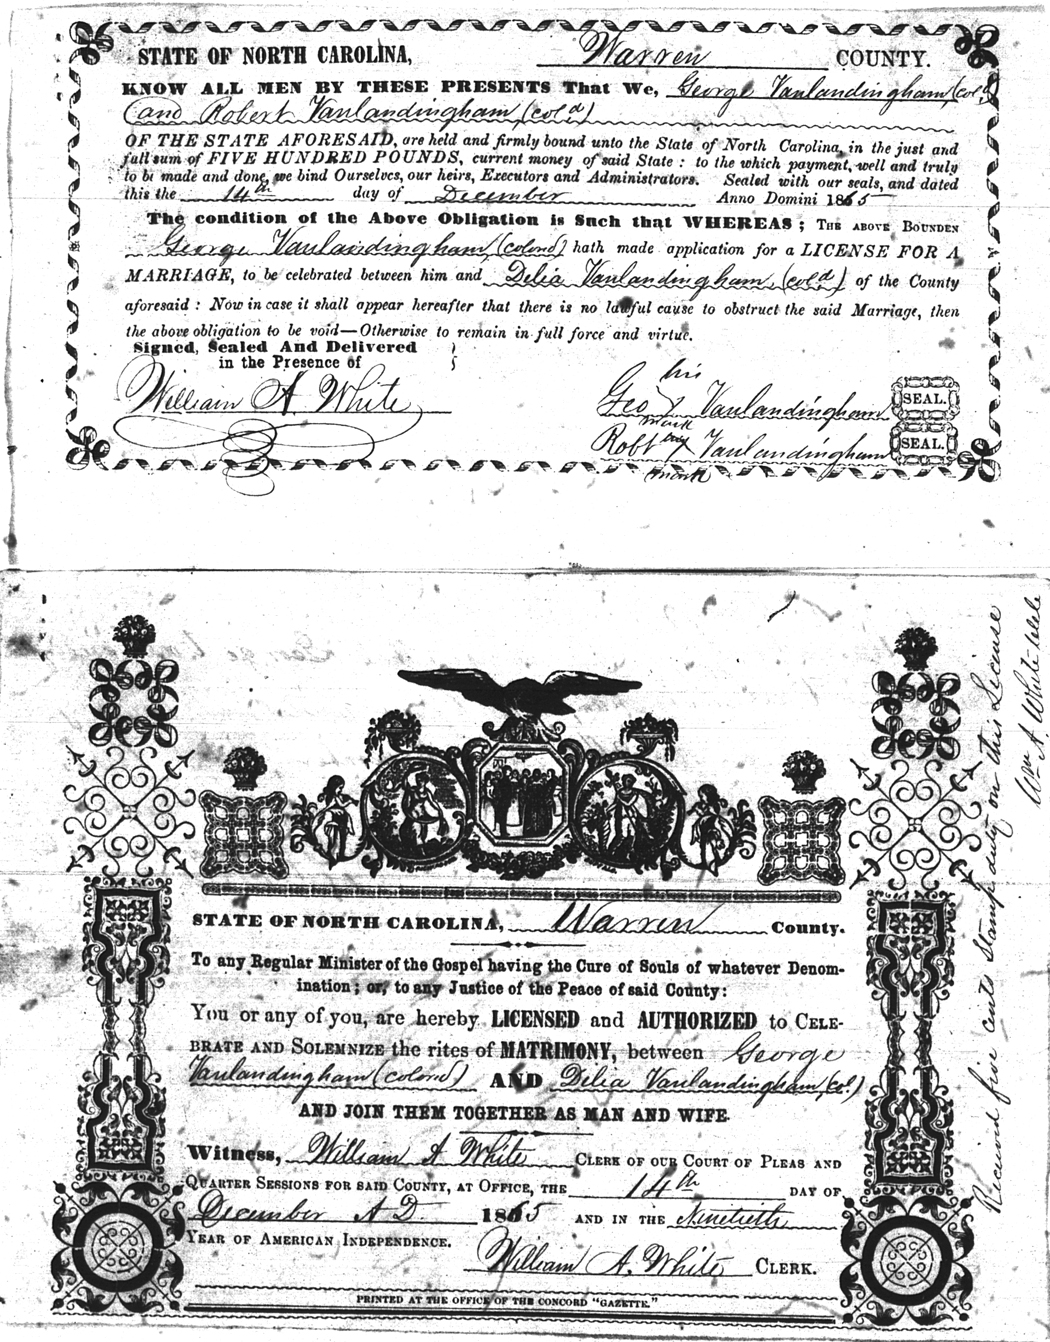 STATE OF NORTH CAROLINA, Warren COUNTY.
KNOW ALL MEN BY THESE PRESENTS That We, George Vanlandingham, (col.d)
and Robert Vanlandingham, (col.d)
OF THE STATE AFORESAID, are held and firmly bound unto the State of North Carolina, in the just and
full sum of FIVE HUNDRED POUNDS, current money of said State: to the which payment, well and truly
to be made and done, we bind Ourselves, our heirs, Executors and Administrators. Sealed with our seals, and dated
this the 14th day of December Anno Domini 1865
The condition of the Above Obligation is Such that WHEREAS; THE ABOVE BOUNDEN
George Vanlandingham, (colord) hath made application for a LICENSE FOR A
MARRIAGE, to be celebrated between him and Delia Vanlandingham, (col.d) of the County
aforesaid: Now in case it shall appear hereafter that there is no lawful cause to obstruct the said Marriage, then
the above obligation to be void—Otherwise to remain in full force and virtue.
Signed, Sealed And Delivered
in the Presence of
William A. White
his
Geo X Vanlandingham SEAL.
mark
Robt X Vanlandingham SEAL.
mark
STATE OF NORTH CAROLINA, Warren County.
To any Regular Minister of the Gospel having the Cure of Souls of whatever Denom-
ination; or, to any Justice of the Peace of said County:
You or any of you, are hereby LICENSED and AUTHORIZED to CELE-
BRATE AND SOLEMNIZE the rites of MATRIMONY, between George
Vanlandingham (colord) AND Delia Vanlandingham, (col.)
AND JOIN THEM TOGETHER AS MAN AND WIFE.
Witness, William A White CLERK OF OUR COURT OF PLEAS AND
QUARTER SESSIONS FOR SAID COUNTY, AT OFFICE, THE 14th DAY OF
December A D. 1865 AND IN THE Ninetieth
YEAR OF AMERICAN INDEPENDENCE.
William A. White CLERK.
PRINTED AT THE OFFICE OF THE CONCORD "GAZETTE."
Received five cents Stamp duty on this License
Wm A. White